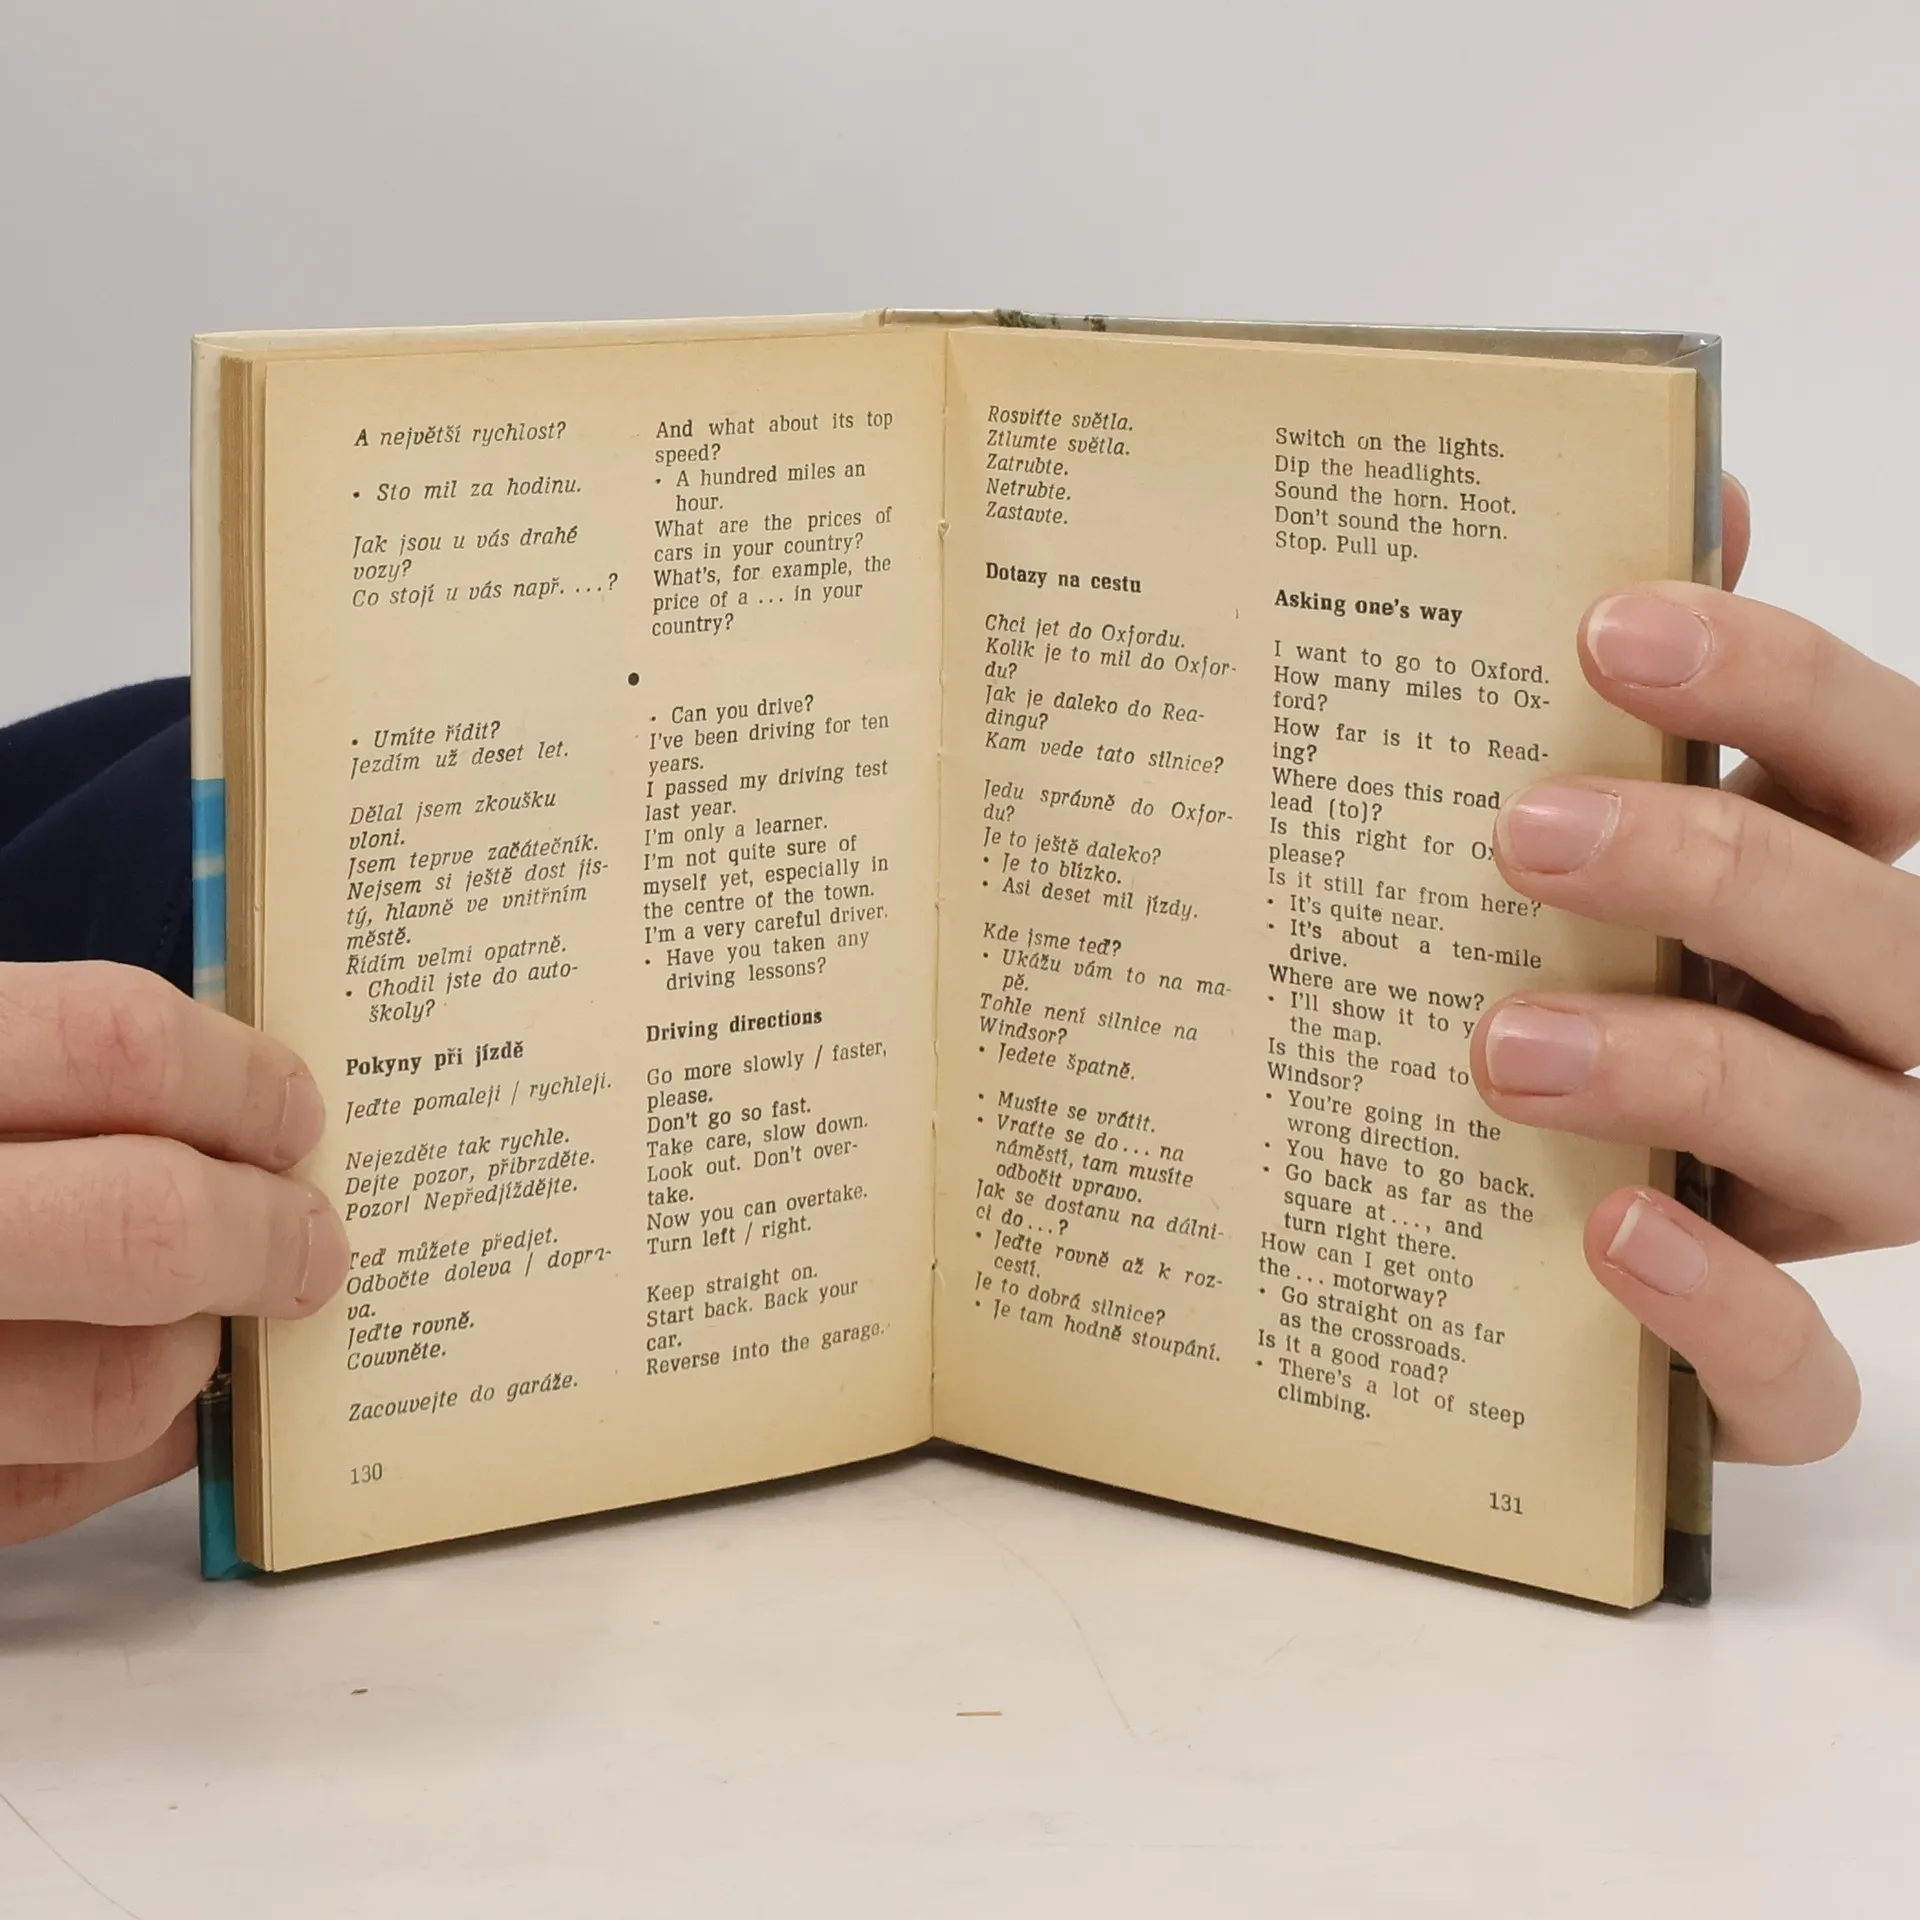 A největší rychlost?
• Sto mil za hodinu.
Jak jsou u vás drahé
vozy?
Co stojí u vás např. ...?
• Umíte řídit?
Jezdím už deset let.
Dělal jsem zkoušku
vloni.
Jsem teprve začátečník.
Nejsem si ještě dost jis-
tý, hlavně ve vnitřním
městě.
Řídím velmi opatrně.
• Chodil jste do auto-
školy?
Pokyny při jízdě
Jeďte pomaleji / rychleji.
Nejezděte tak rychle.
Dejte pozor, přibrzděte.
Pozor! Nepředjíždějte.
Teď můžete předjet.
Odbočte doleva / dopra-
va.
Jeďte rovně.
Couvněte.
Zacouvejte do garáže.
130
And what about its top
speed?
• A hundred miles an
hour.
What are the prices of
cars in your country?
What's, for example, the
price of a ... in your
country?
•
• Can you drive?
I've been driving for ten
years.
I passed my driving test
last year.
I'm only a learner.
I'm not quite sure of
myself yet, especially in
the centre of the town.
I'm a very careful driver.
• Have you taken any
driving lessons?
Driving directions
Go more slowly / faster,
please.
Don't go so fast.
Take care, slow down.
Look out. Don't over-
take.
Now you can overtake.
Turn left / right.
Keep straight on.
Start back. Back your
car.
Reverse into the garage.
Rosviťte světla.
Ztlumte světla.
Zatrubte.
Netrubte.
Zastavte.
Dotazy na cestu
Chci jet do Oxfordu.
Kolik je to mil do Oxfor-
du?
Jak je daleko do Rea-
dingu?
Kam vede tato silnice?
Jedu správně do Oxfor-
du?
Je to ještě daleko?
• Je to blízko.
• Asi deset mil jízdy.
Kde jsme teď?
• Ukážu vám to na ma-
pě.
Tohle není silnice na
Windsor?
• Jedete špatně.
• Musíte se vrátit.
• Vraťte se do ... na
náměstí, tam musíte
odbočit vpravo.
Jak se dostanu na dálni-
ci do ...?
• Jeďte rovně až k roz-
cestí.
Je to dobrá silnice?
• Je tam hodně stoupání.
Switch on the lights.
Dip the headlights.
Sound the horn. Hoot.
Don't sound the horn.
Stop. Pull up.
Asking one's way
I want to go to Oxford.
How many miles to Ox-
ford?
How far is it to Read-
ing?
Where does this road
lead (to)?
Is this right for
please?
Is it still far from here?
• It's quite near.
• It's about a ten-mile
drive.
Where are we now?
• I'll show it to
the map.
Is this the road to
Windsor?
• You're going in the
wrong direction.
• You have to go back.
• Go back as far as the
square at ..., and
turn right there.
How can I get onto
the ... motorway?
• Go straight on as far
as the crossroads.
Is it a good road?
• There's a lot of steep
climbing.
131